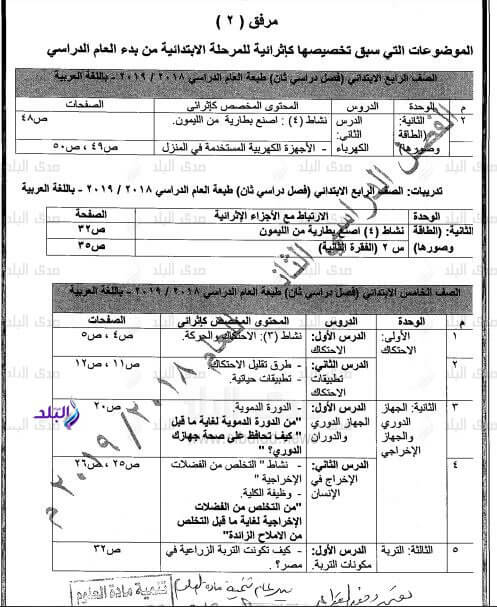 مرفق ( ٢ )
الموضوعات التي سبق تخصيصها كإثرائية للمرحلة الابتدائية من بدء العام الدراسي
الصف الرابع الابتدائي (فصل دراسي ثان) طبعة العام الدراسي ٢٠١٨ / ٢٠١٩ - باللغة العربية
م الوحدة الدروس المحتوى المخصص كإثرائي الصفحات
٢ الثانية: الدرس نشاط (٤) : اصنع بطارية من الليمون. ص٤٨
(الطاقة الثاني:
وصورها) الكهرباء - الأجهزة الكهربية المستخدمة في المنزل ص٤٩ ، ص٥٠
تدريبات: الصف الرابع الابتدائي (فصل دراسي ثان) طبعة العام الدراسي ٢٠١٨ / ٢٠١٩ - باللغة العربية
الوحدة الارتباط مع الأجزاء الإثرائية الصفحة
الثانية: (الطاقة نشاط (٤) اصنع بطارية من الليمون ص٣٢
وصورها) س ٢ (الفقرة الثانية) ص٣٥
الصف الخامس الابتدائي (فصل دراسي ثان) طبعة العام الدراسي ٢٠١٨ / ٢٠١٩ - باللغة العربية
م الوحدة الدروس المحتوى المخصص كإثرائي الصفحات
١ الأولى: الدرس الأول: نشاط (٣): الاحتكاك والحركة. ص٤ ، ص٥
الاحتكاك الاحتكاك
٢ الدرس الثاني: - طرق تقليل الاحتكاك. ص١١ ، ص١٢
تطبيقات - تطبيقات حياتية.
الاحتكاك
٣ الثانية: الجهاز الدرس الأول: - الدورة الدموية. ص٢٠
الدوري الجهاز الدوري "من الدورة الدموية لغاية ما قبل
والجهاز والدوران " كيف تحافظ على صحة جهازك
الإخراجي الدوري؟"
٤ الدرس الثاني: - نشاط " التخلص من الفضلات ص٢٥ ، ص٢٦
الإخراج في الإخراجية "
الإنسان - وظيفة الكلية.
"من التخلص من الفضلات
الإخراجية لغاية ما قبل التخلص
من الاملاح الزائدة"
٥ الثالثة: التربة الدرس الأول: - كيف تكونت التربة الزراعية في ص٣٢
مكونات التربة. مصر؟
الفصل الدراسي الثاني للعام ٢٠١٨ / ٢٠١٩ م
البلد
صدى البلد
تنمية مادة العلوم